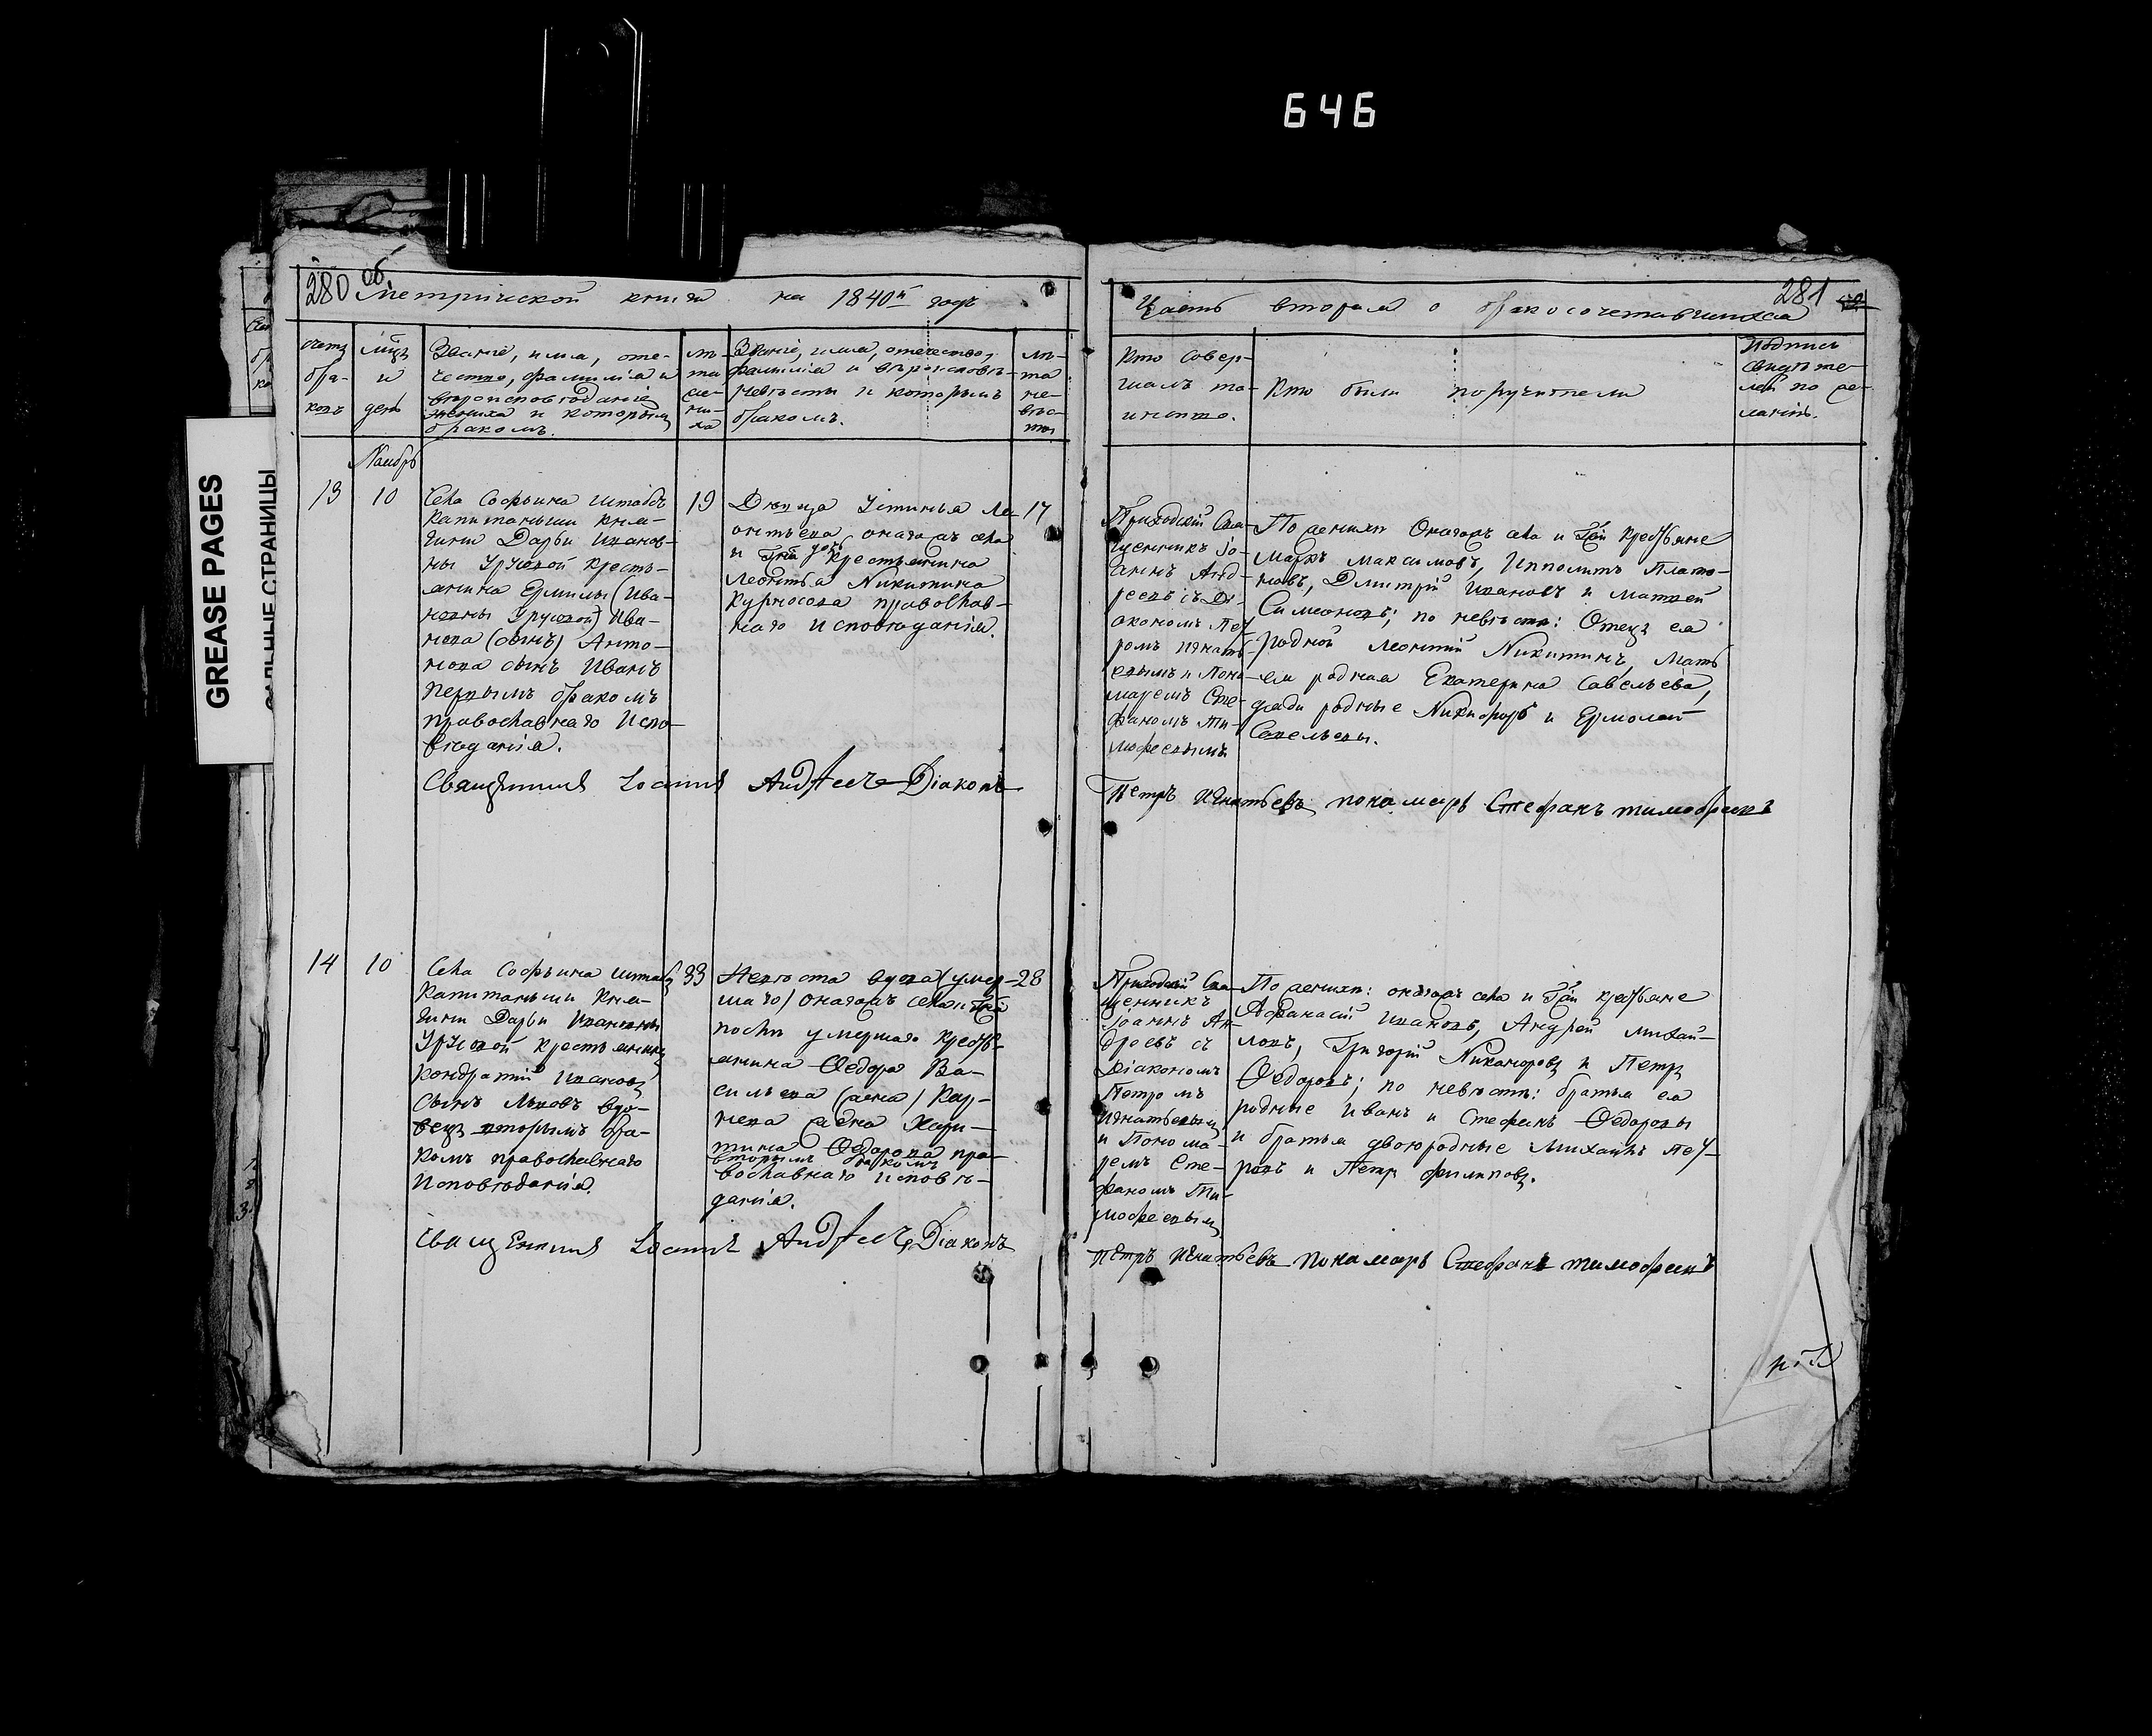 646
GREASE PAGES
САЛЬНЫЕ СТРАНИЦЫ
280 об.
Метрической книги на 1840й годъ
счетъ бра-ковъ
мѣцъ и день
Званіе, имя, оте-
чество, фамилія и
вѣроисповѣданіе
жениха и которымъ
бракомъ.
лѣ-
та
же-
ни-
ха
Званіе, имя, отечество,
фамилія и вѣроисповѣ-
невѣсты и которымъ
бракомъ.
лѣ-
та
не-
вѣс-
ты
Ноябрь
13
10
Села Софьина штабсъ
Капитанши Кня-
гини Дарьи Иванов-
ны Урусовой кресть-
янина Ермилы (Ива-
новны Урусовой) Ива-
нова (сынъ) Анто-
нова сынъ Иванъ
первымъ бракомъ
православнаго Испо-
вѣданія.
19
Дѣвица Устинья Ле-
онтьева онагожъ села
и Гжи дочь крестьянина
Леонтья Никитина
Курносова православ-
наго исповѣданія.
17
Священникъ Іоаннъ Андреевъ Діаконъ
14
10
Села Софьина штабсъ
Капитанши Кня-
гини Дарьи Ивановны
Урусовой крестьянинъ
Кондратій Ивановъ
Сынъ Львовъ вдо-
вецъ вторымъ бра-
комъ православнаго
Исповѣданія.
33
Невѣста вдова (умер-
шаго) онагожъ села и Гжи
послѣ умершаго кресть-
янина Ѳедора Ва-
сильева (жена) Кар-
нева жена Хари-
тина Ѳедорова пра-
вторымъ бракомъ
вославнаго исповѣ-
данія.
28
Священникъ Іоаннъ Андреевъ Діаконъ
281
Часть вторая о бракосочетавшихся
Кто совер-
шалъ та-
инство.
Кто были поручители
Подпись
свидѣте-
лей по же-
ланію.
Приходскій Свя-
щенникъ Іо-
аннъ Анд-
реевъ съ Ді-
акономъ Пет
ромъ Игнать-
евымъ и Поно-
маремъ Сте-
фаномъ Ти-
мофеевымъ
По женихѣ Онагожъ села и Гжи крестьяне
Маркъ Максимовъ, Ипполитъ Плато-
новъ, Дмитрій Ивановъ и Матвей
Симеоновъ; по невѣстѣ: Отецъ ея
родной Леонтій Никитинъ, Мать
ея родная Екатерина Савельева,
дяди родные Никифоръ и Ермолай
Савельевы.
Петръ Игнатьевъ пономарь Стефанъ тимофеевъ
Приходскій Свя-
щенникъ
Іоаннъ Ан-
дреевъ съ
Діакономъ
Петромъ
Игнатьевымъ
и Понома-
ремъ Сте-
фаномъ Ти-
мофеевымъ
По женихѣ: онагожъ села и Гжи крестьяне
Афанасій Ивановъ, Андрей Михай-
ловъ, Григорій Никаноровъ и Петръ
Ѳедоровъ; по невѣстѣ: братья ея
родные Иванъ и Стефанъ Ѳедоровы
и братья двоюродные Михаилъ Пет-
ровъ и Петръ Филиповъ.
Петръ Игнатьевъ пономарь Стефанъ тимофеевъ